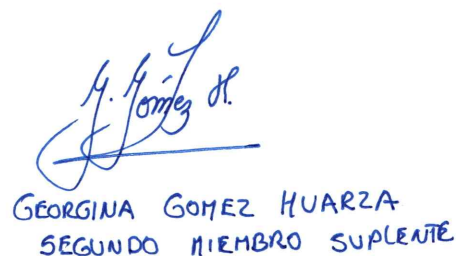 G. Gómez H.
GEORGINA GOMEZ HUARZA
SEGUNDO MIEMBRO SUPLENTE